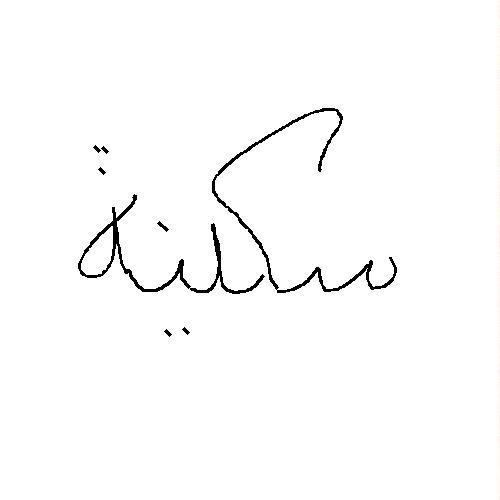 سكينة